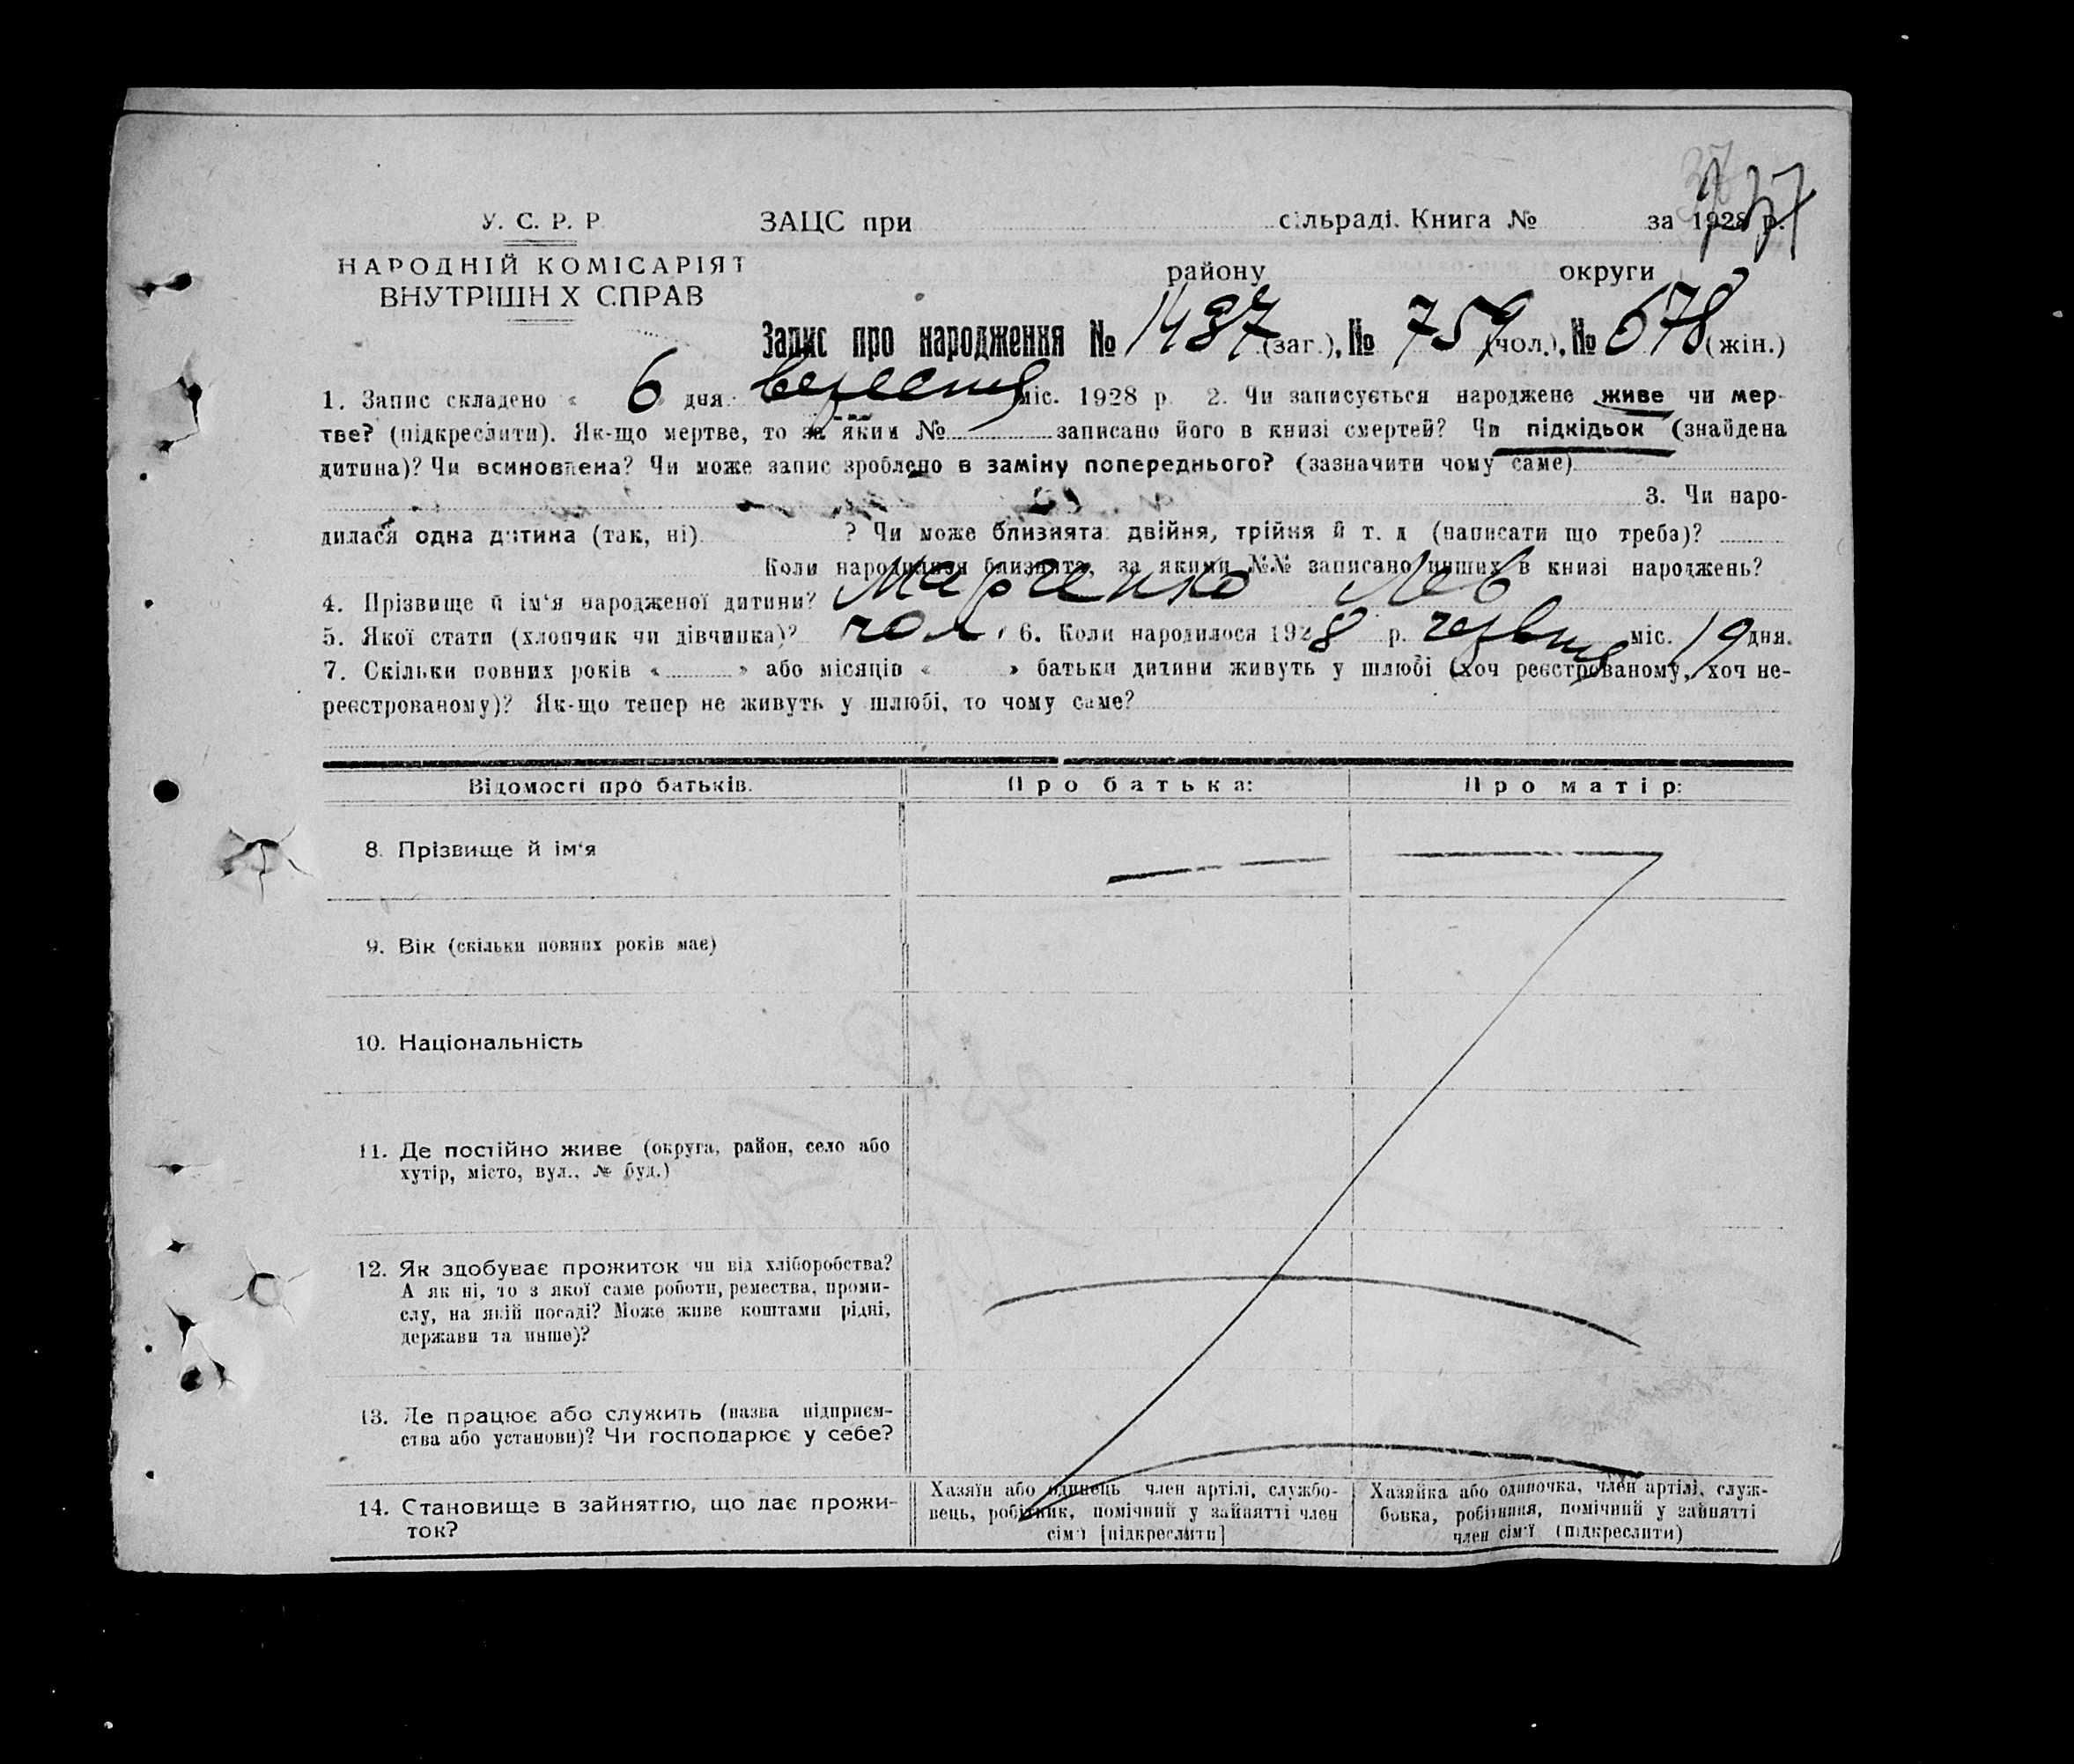 37
У. С. Р. Р. ЗАЦС при сільраді. Книга № за 1928 р.
НАРОДНІЙ КОМІСАРІЯТ района округи
ВНУТРІШН Х СПРАВ
Запис про народження № 1437 (заг.), № 759 (чол.), № 678 (жін.)
1. Запис складено « 6 дня вересня міс. 1928 р. 2. Чи записується народжене живе чи мер-
тве? (підкреслити). Як-що мертве, то за яким № записано його в книзі смертей? Чи підкідьок (знайдена
дитина)? Чи всиновлена? Чи може запис зроблено в заміну попереднього? (зазначити чому саме)
3. Чи наро-
дилася одна дитина (так, ні) ? Чи може близнята: двійня, трійня й т. д (написати що треба)?
Коли народилися близнята, за якими №№ записано инших в книзі народжень?
4. Прізвище й ім'я народженої дитини? Марченко Лев
5. Якої стати (хлопчик чи дівчинка)? чол. 6. Коли народилося 1928 р. червня міс. 19 дня.
7. Скільки повних років « » або місяців « » батьки дитини живуть у шлюбі (хоч реєстрованому, хоч не-
реєстрованому)? Як-що тепер не живуть у шлюбі, то чому саме?
Відомості про батьків. Про батька: Про матір:
8. Прізвище й ім'я
9. Вік (скільки повних років має)
10. Національність
11. Де постійно живе (округа, район, село або
хутір, місто, вул., № буд.)
12. Як здобуває прожиток чи від хліборобства?
А як ні, то з якої саме роботи, ремества, проми-
слу, на якій посаді? Може живе коштами рідні,
держави та инше)?
13. Де працює або служить (назва підприєм-
ства або установи)? Чи господарює у себе?
14. Становище в зайняттю, що дає прожи-
ток?
Хазяїн або одинець член артілі, службо-
вець, робітник, помічний у зайнятті член
сім'ї [підкреслити]
Хазяйка або одиночка, член артілі, служ-
бовка, робітниця, помічний у зайнятті
член сім'ї (підкреслити)